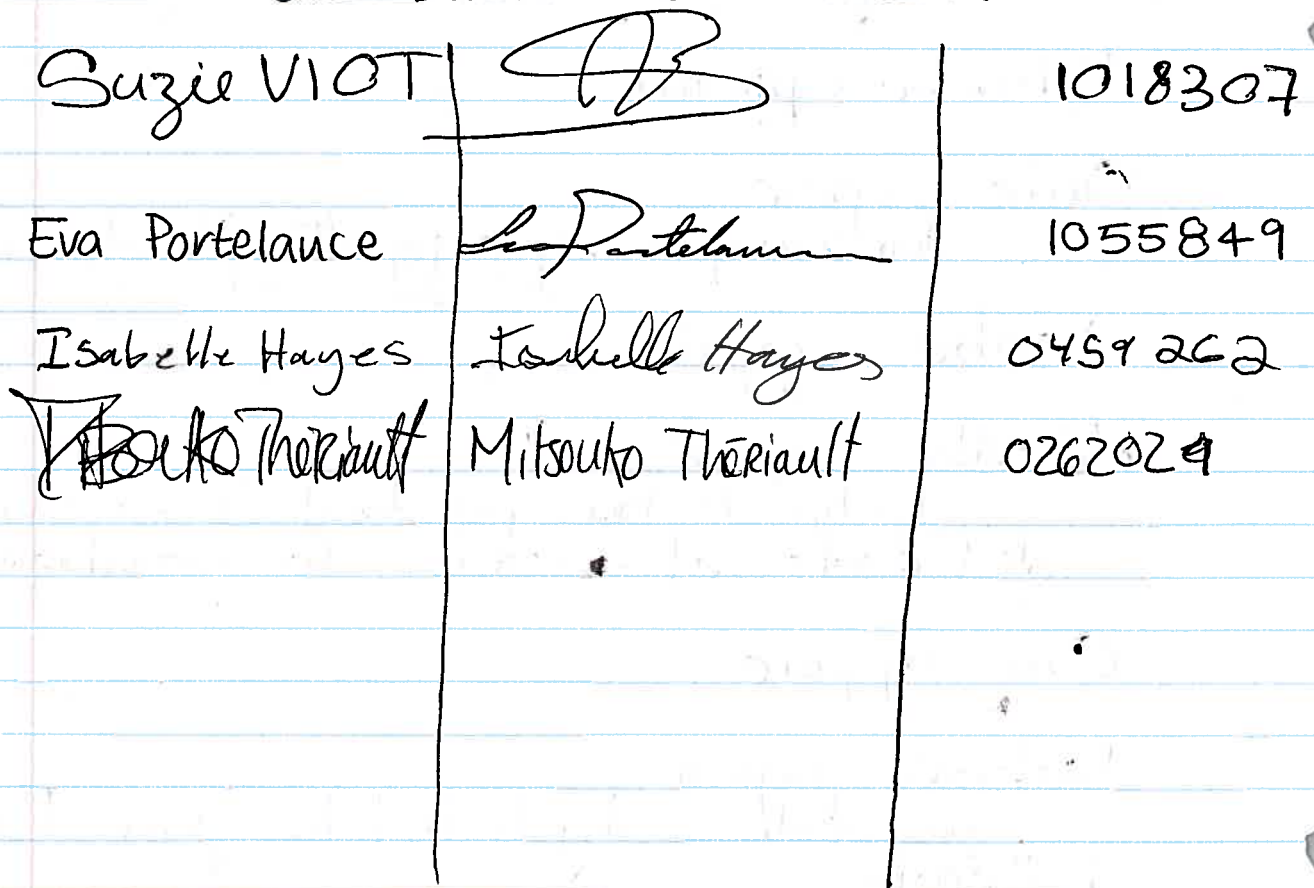 Suzie VIOT 1018307
Eva Portelance Eva Portelance 1055849
Isabelle Hayes Isabelle Hayes 0459262
Thériault Mitsouko Thériault 026202